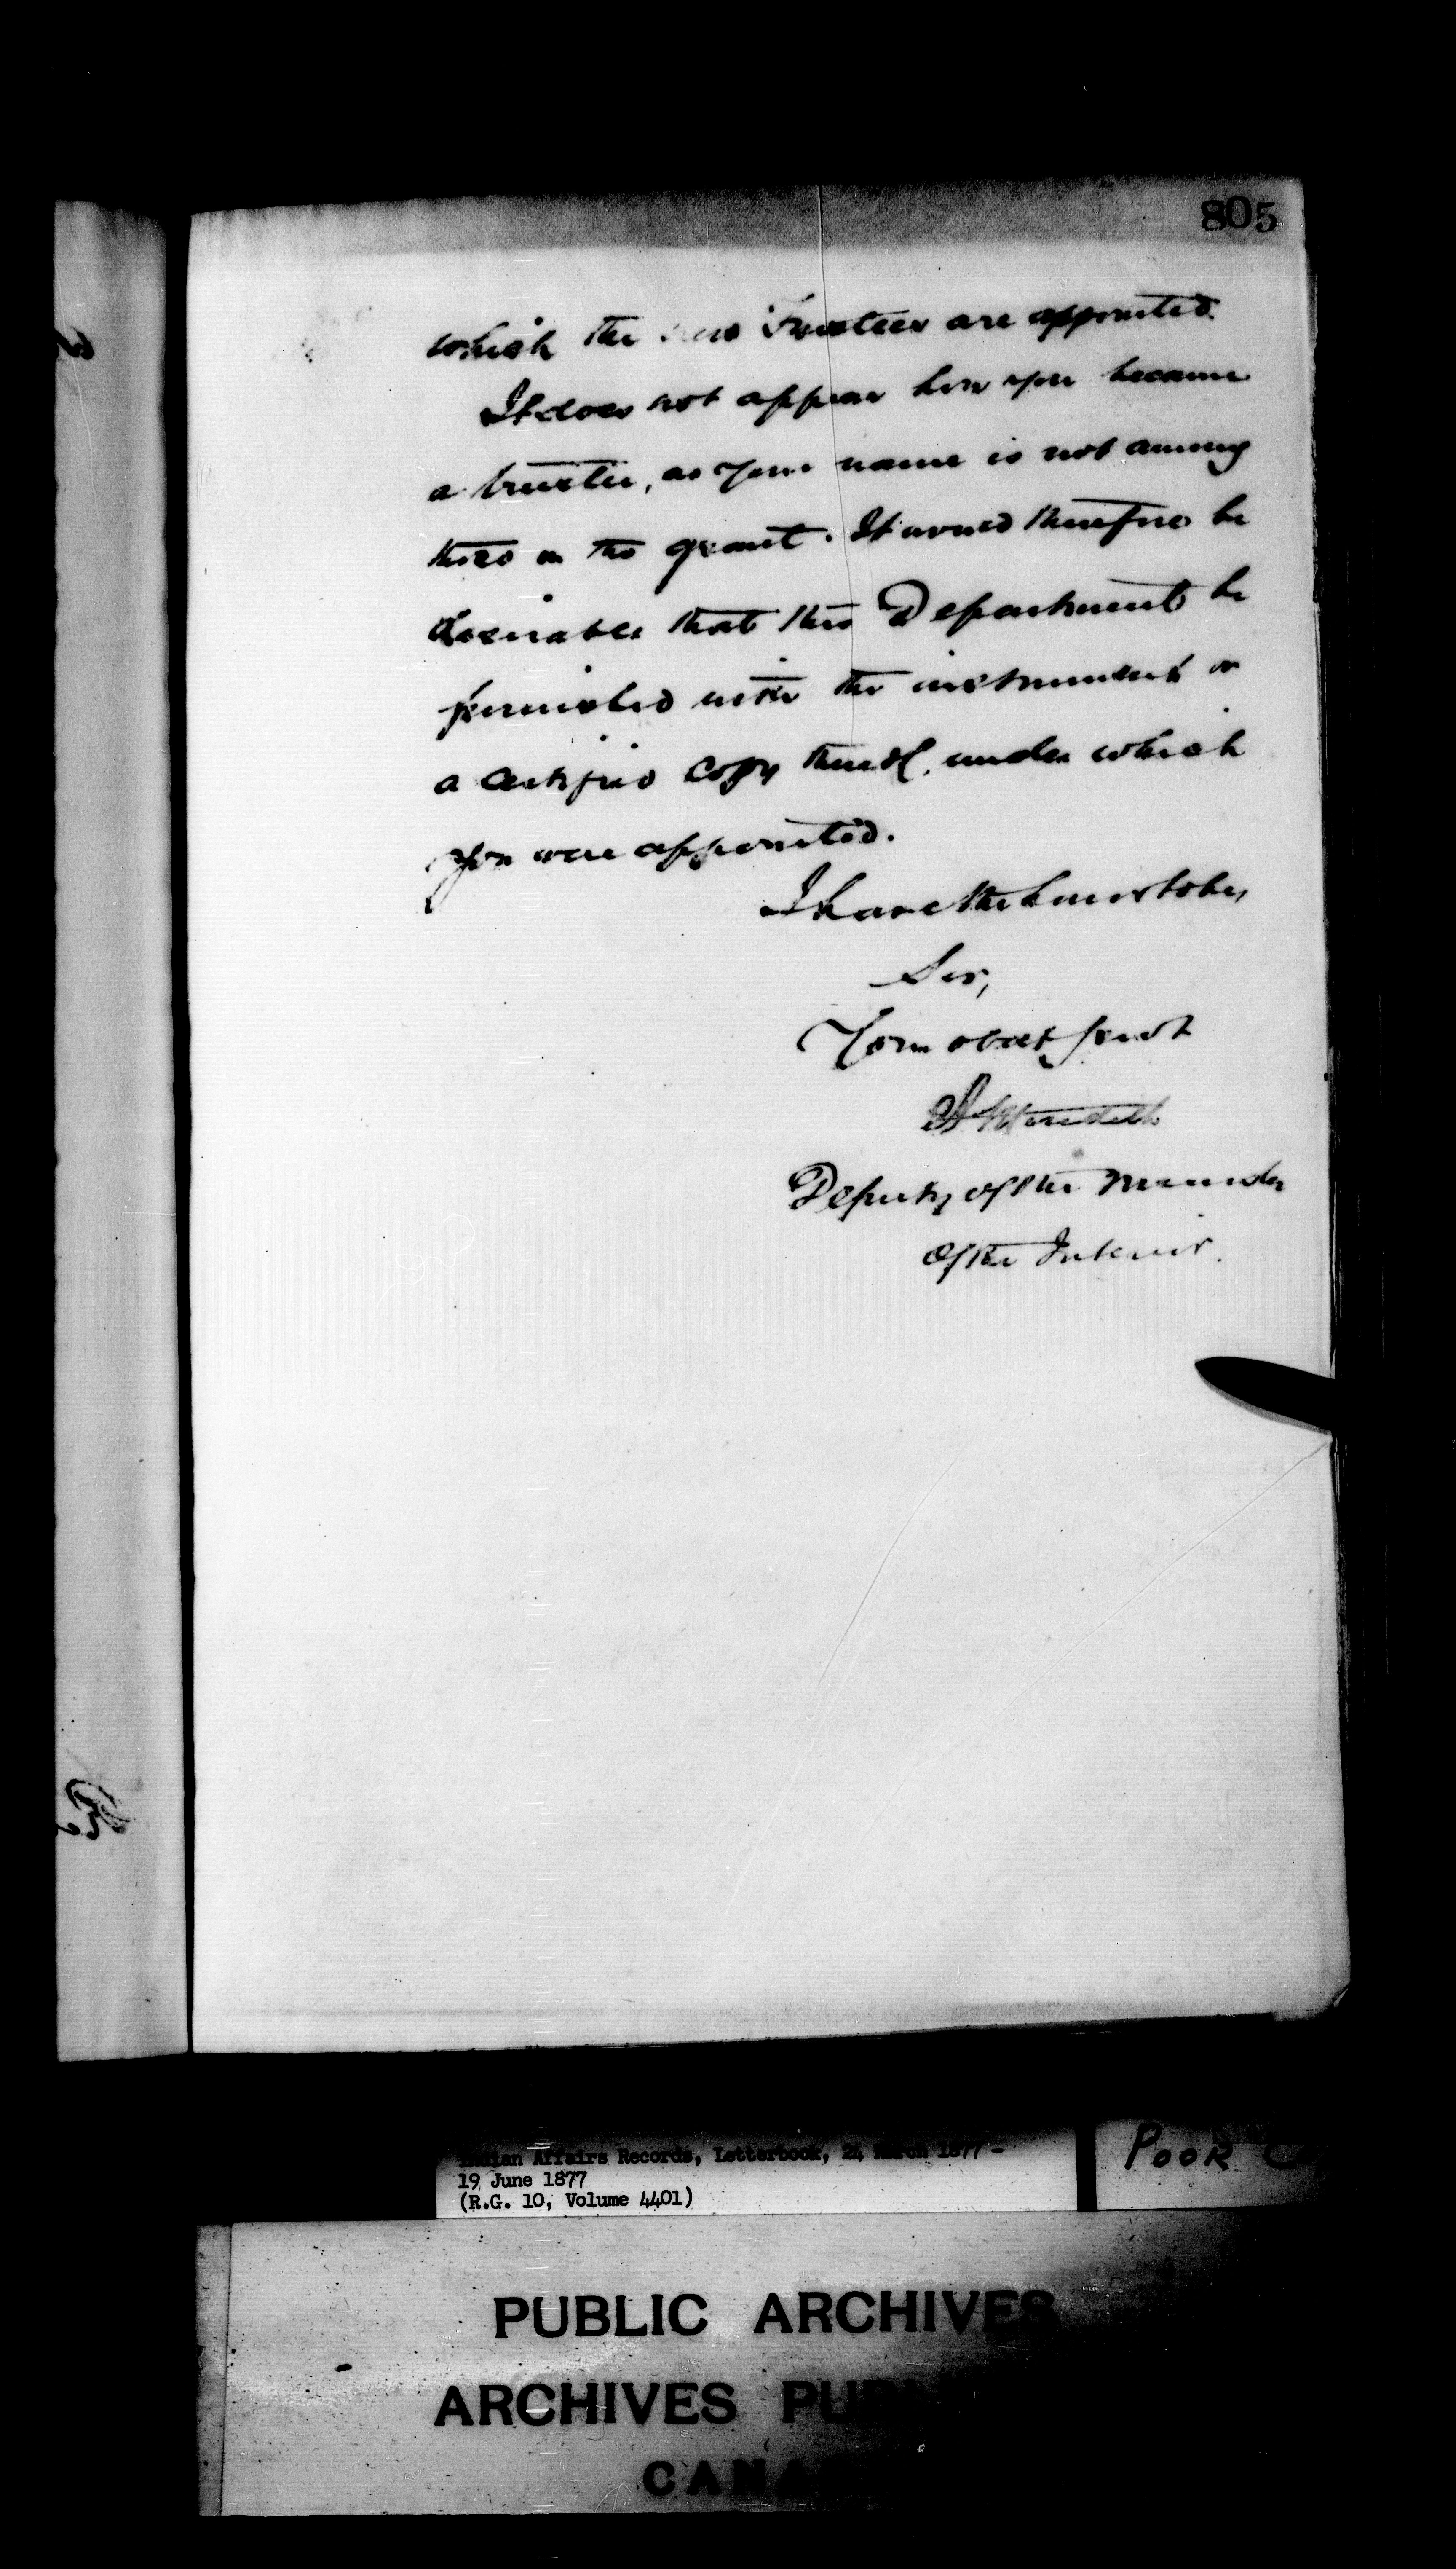 805
which the new Trustees are appointed.
It does not appear how you became
a trustee, as your name is not among
those in the grant. It would therefore be
desirable that this Department be
furnished with the instrument or
a certified copy thereof, under which
you were appointed.
I have the honor to be,
Sir,
Your obedt servt
Meredith
Deputy of the Minister
of the Interior.
Indian Affairs Records, Letterbook, 24 March 1877 -
19 June 1877
(R.G. 10, Volume 4401)
POOR
PUBLIC ARCHIVES
ARCHIVES PU
CANA